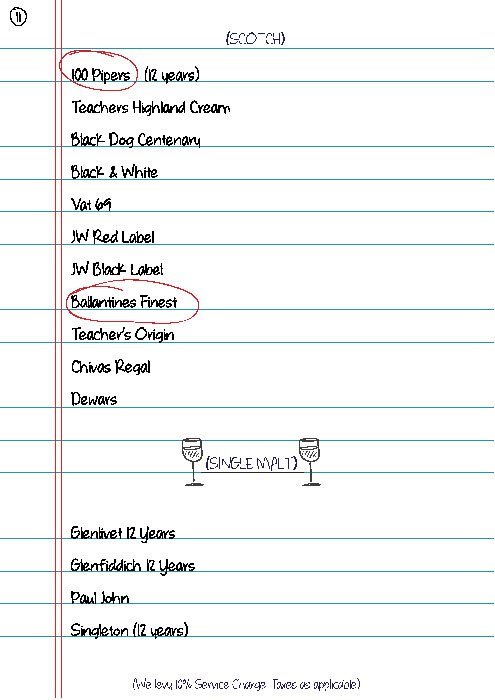 11
(SCOTCH)
100 Pipers (12 years)
Teachers Highland Cream
Black Dog Centenary
Black & White
Vat 69
JW Red Label
JW Black Label
Ballantines Finest
Teacher's Origin
Chivas Regal
Dewars
(SINGLE MALT)
Glenlivet 12 Years
Glenfiddich 12 Years
Paul John
Singleton (12 years)
(We levy 10% Service Charge. Taxes as applicable)